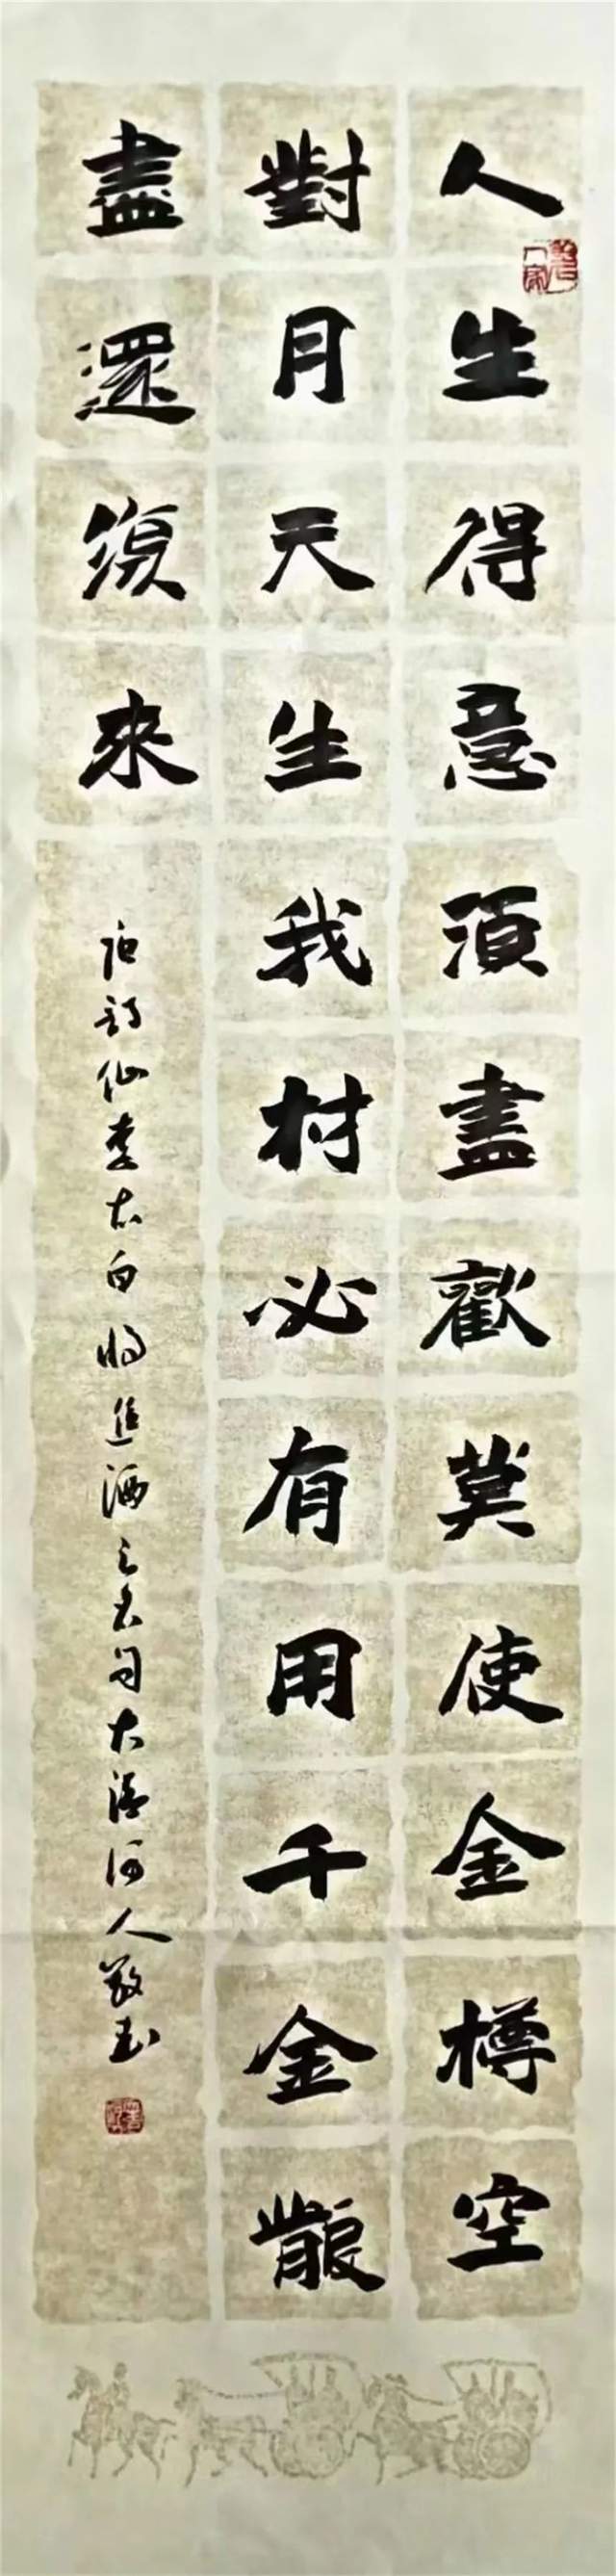 人生得意須盡歡莫使金樽空
對月天生我材必有用千金散
盡還復來
唐詩仙李太白將進酒之名句大渡河人敬書